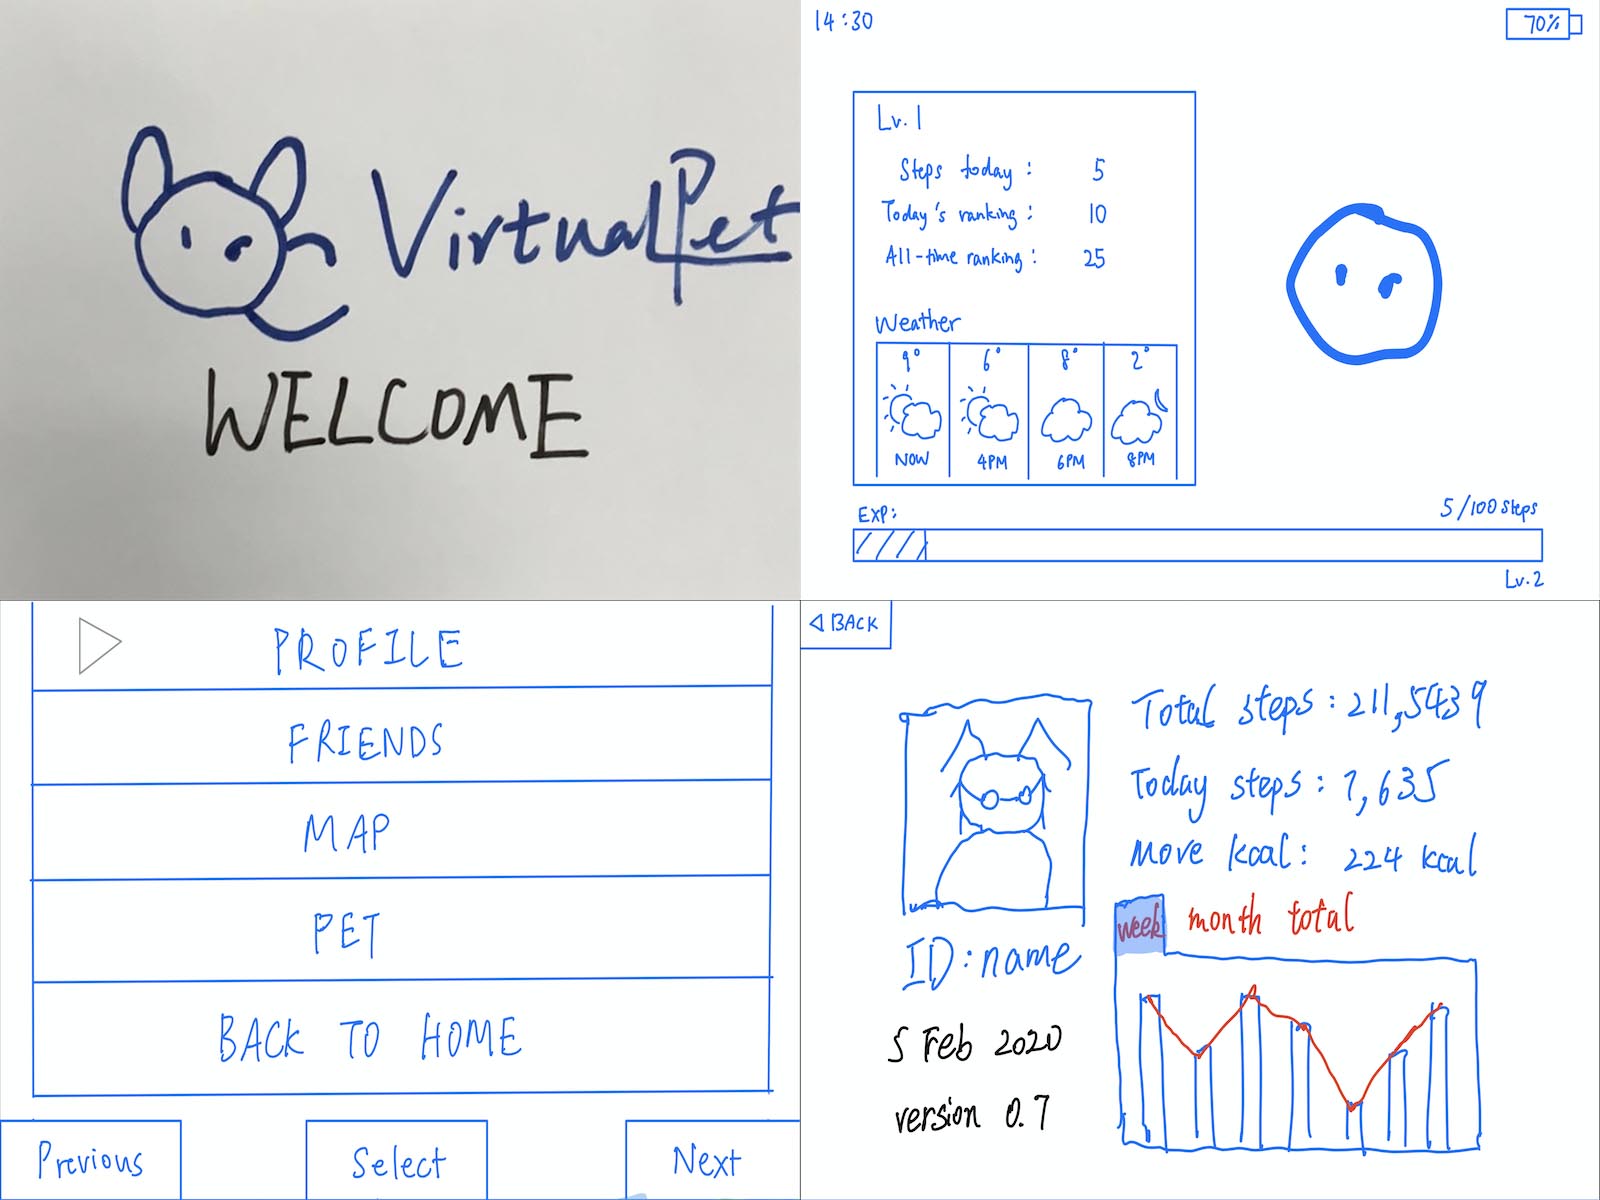 VirtualPet
WELCOME
14:30
70%
Lv. 1
Steps today: 5
Today's ranking: 10
All-time ranking: 25
Weather
9° 6° 8° 2°
NOW 4PM 6PM 8PM
EXP: 5/100 steps
Lv.2
PROFILE
FRIENDS
MAP
PET
BACK TO HOME
Previous Select Next
BACK
Total steps: 211,5439
Today steps: 7,635
Move kcal: 224 kcal
week month total
ID: name
5 Feb 2020
version 0.7